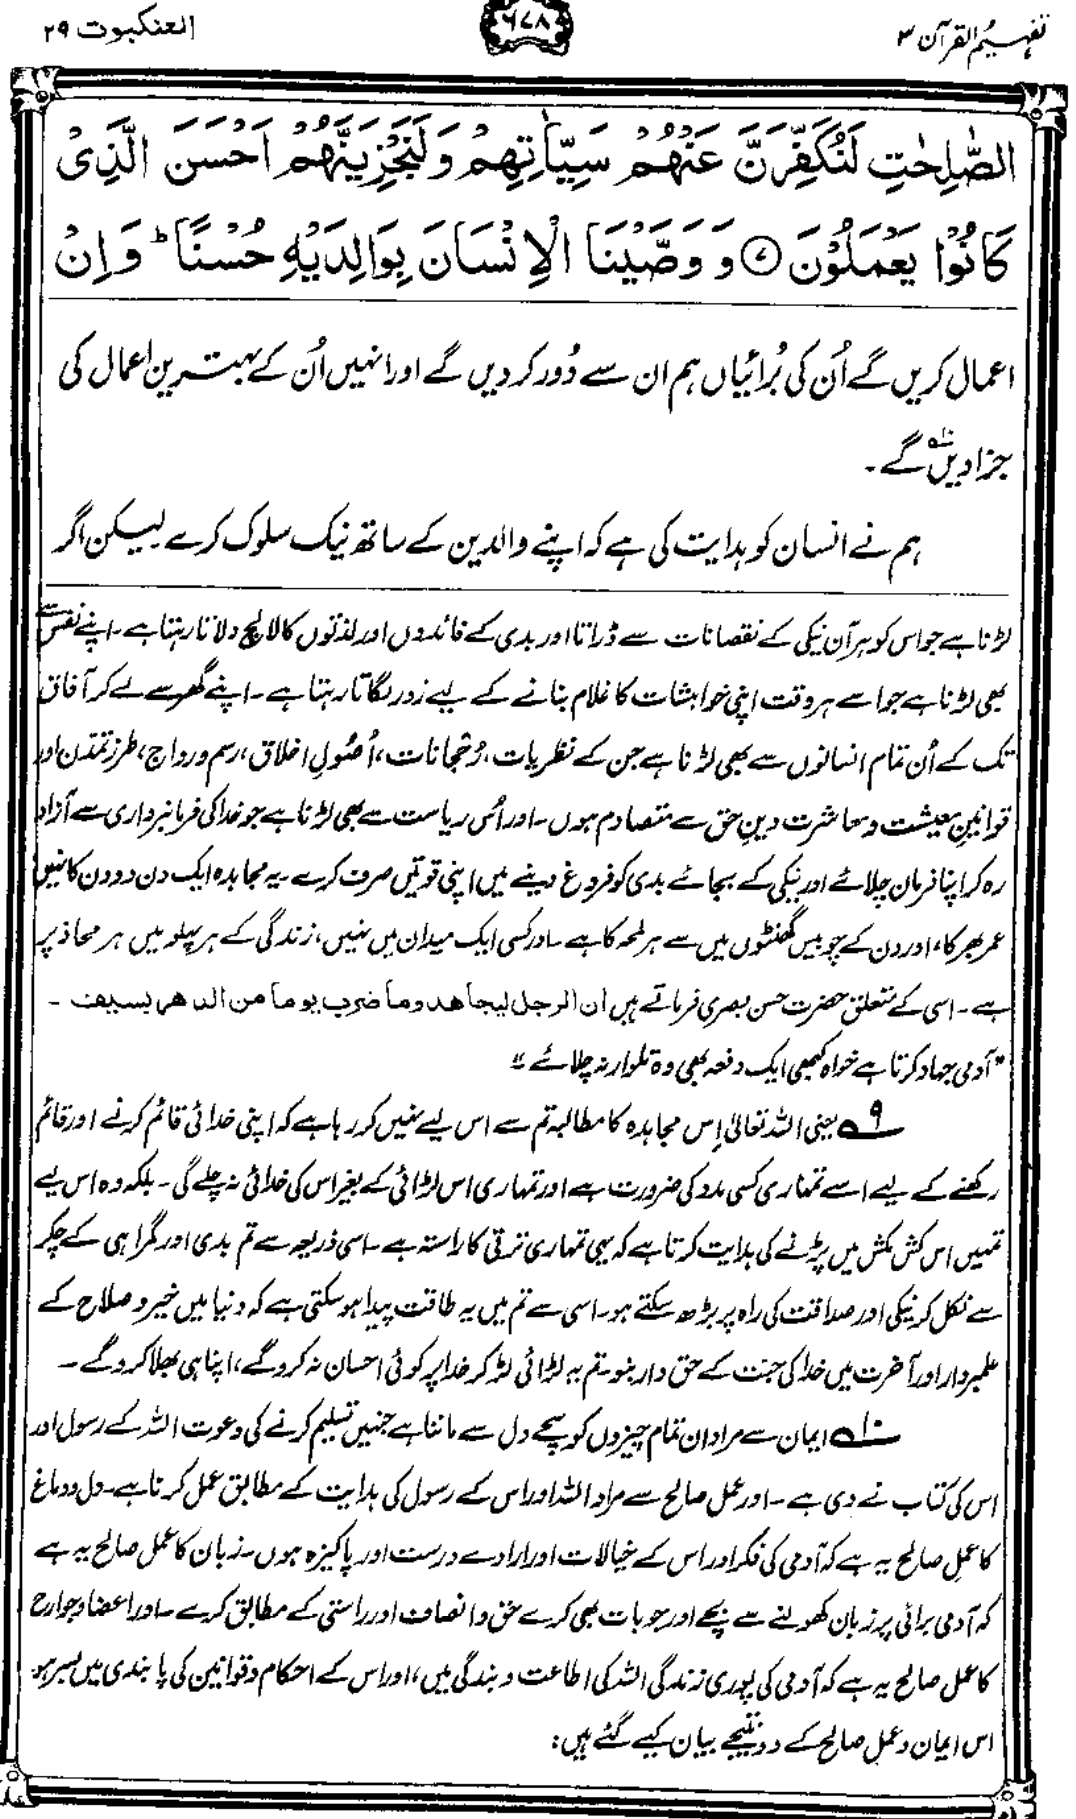 تفہیم القرآن ۳
۶۷۸
العنکبوت ۲۹
الصّٰلِحٰتِ لَنُكَفِّرَنَّ عَنْهُمْ سَيِّاٰتِهِمْ وَلَنَجْزِيَنَّهُمْ اَحْسَنَ الَّذِىْ
كَانُوْا يَعْمَلُوْنَ ۷ وَ وَصَّيْنَا الْاِنْسَانَ بِوَالِدَيْهِ حُسْنًا ؕ وَاِنْ
اعمال کریں گے اُن کی بُرائیاں ہم ان سے دُور کر دیں گے اور انہیں اُن کے بہترین اعمال کی
جزا دیں گے۔ ۱۰
ہم نے انسان کو ہدایت کی ہے کہ اپنے والدین کے ساتھ نیک سلوک کرے لیکن اگر
لڑنا ہے جو اس کو ہر آن نیکی کے نقصانات سے ڈراتا اور بدی کے فائدوں اور لذتوں کا لالچ دلاتا رہتا ہے۔ اپنے نفس سے
بھی لڑنا ہے جو اسے ہر وقت اپنی خواہشات کا غلام بنانے کے لیے زور لگاتا رہتا ہے۔ اپنے گھر سے لے کر آفاق
تک کے اُن تمام انسانوں سے بھی لڑنا ہے جن کے نظریات، رُجحانات، اُصُولِ اخلاق، رسم و رواج، طرزِ تمدن اور
قوانینِ معیشت و معاشرت دینِ حق سے متصادم ہوں۔ اور اُس ریاست سے بھی لڑنا ہے جو خدا کی فرمانبرداری سے آزاد
رہ کر اپنا فرمان چلائے اور نیکی کے بجائے بدی کو فروغ دینے میں اپنی قوتیں صرف کرے۔ یہ مجاہدہ ایک دن دو دن کا نہیں
عمر بھر کا، اور دن کے چوبیس گھنٹوں میں سے ہر لمحہ کا ہے۔ اور کسی ایک میدان میں نہیں، زندگی کے ہر پہلو میں ہر محاذ پر
ہے۔ اسی کے متعلق حضرت حسن بصری فرماتے ہیں ان الرجل ليجاهد وما ضرب يوما من الدهر بسيف ۔
"آدمی جہاد کرتا ہے خواہ کبھی ایک دفعہ بھی وہ تلوار نہ چلائے"
۹ یعنی اللہ تعالیٰ اِس مجاہدہ کا مطالبہ تم سے اس لیے نہیں کر رہا ہے کہ اپنی خدائی قائم کرنے اور قائم
رکھنے کے لیے اسے تمہاری کسی مدد کی ضرورت ہے اور تمہاری اس لڑائی کے بغیر اس کی خدائی نہ چلے گی۔ بلکہ وہ اس لیے
تمہیں اس کش مکش میں پڑنے کی ہدایت کرتا ہے کہ یہی تمہاری ترقی کا راستہ ہے۔ اسی ذریعہ سے تم بدی اور گمراہی کے چکر
سے نکل کر نیکی اور صداقت کی راہ پر بڑھ سکتے ہو۔ اسی سے تم میں یہ طاقت پیدا ہو سکتی ہے کہ دنیا میں خیر و صلاح کے
علمبردار اور آخرت میں خدا کی جنت کے حق دار بنو۔ تم یہ لڑائی لڑ کر خدا پر کوئی احسان نہ کرو گے، اپنا ہی بھلا کرو گے۔
۱۰ ایمان سے مراد ان تمام چیزوں کو سچے دل سے ماننا ہے جنہیں تسلیم کرنے کی دعوت اللہ کے رسول اور
اس کی کتاب نے دی ہے۔ اور عمل صالح سے مراد اللہ اور اس کے رسول کی ہدایت کے مطابق عمل کرنا ہے۔ دل و دماغ
کا عمل صالح یہ ہے کہ آدمی کی فکر اور اس کے خیالات اور ارادے درست اور پاکیزہ ہوں۔ زبان کا عمل صالح یہ ہے
کہ آدمی برائی پر زبان کھولنے سے بچے اور جو بات بھی کرے حق و انصاف اور راستی کے مطابق کرے۔ اور اعضا و جوارح
کا عمل صالح یہ ہے کہ آدمی کی پوری زندگی اللہ کی اطاعت و بندگی میں، اور اس کے احکام و قوانین کی پابندی میں بسر ہو۔
اس ایمان و عمل صالح کے دو نتیجے بیان کیے گئے ہیں: